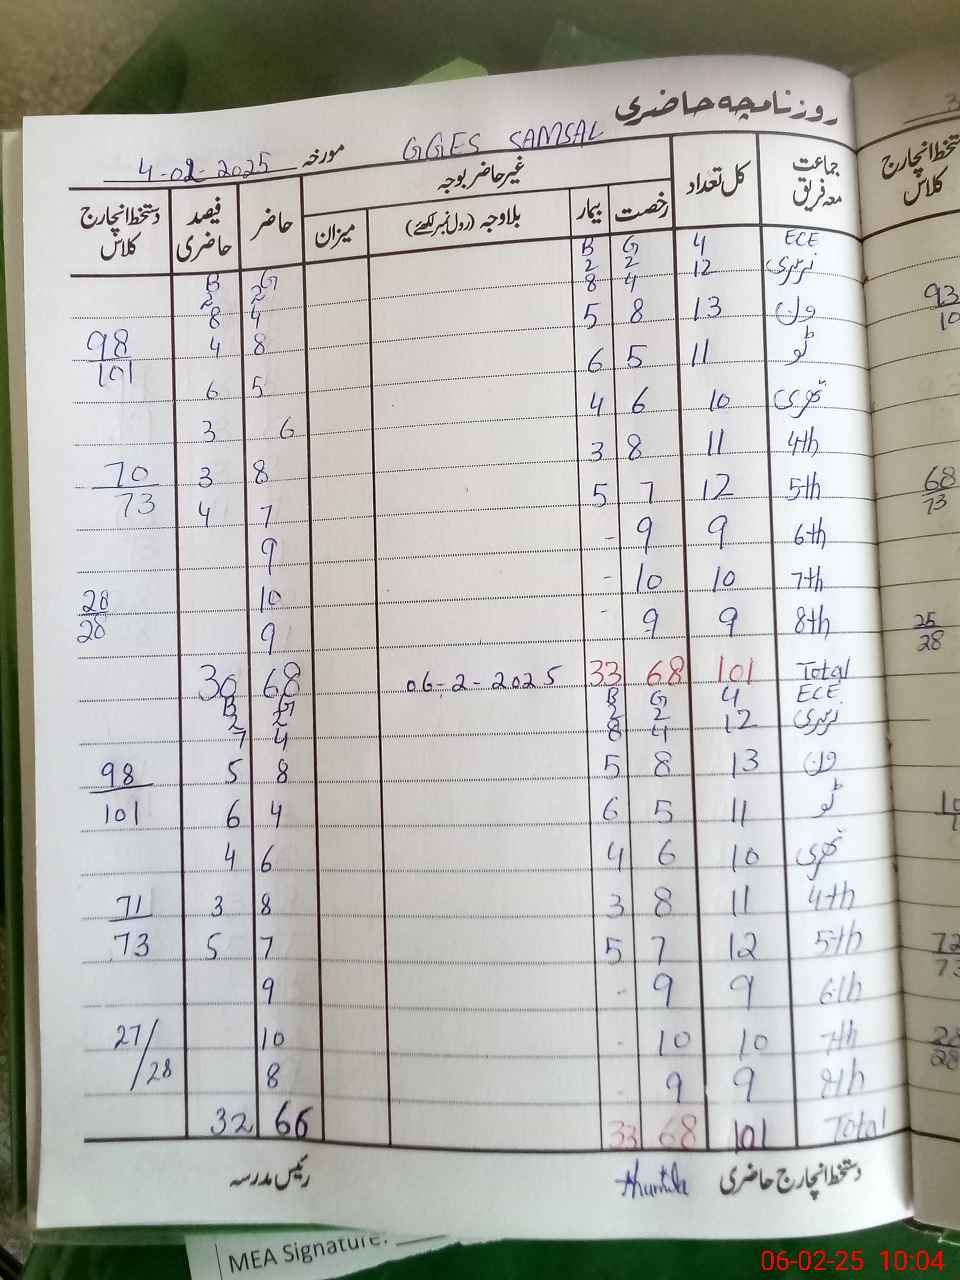 روزنامچہ حاضری
GGES SAMSAL
مورخہ 4-02-2025
جماعت معہ فریق | کل تعداد | غیر حاضر بوجہ | حاضر | فیصد حاضری | دستخط انچارج کلاس
رخصت | بیمار | بلاوجہ (رول نمبر لکھئے) | میزان
ECE 4 G 2 B 2
نرسری 12 4 8 G 2 B 2
4 8
ون 13 8 5 8 4 98/101
ٹو 11 5 6 5 6
تھری 10 6 4 6 3
4th 11 8 3 8 3 70/73
5th 12 7 5 7 4
6th 9 9 - 9
7th 10 10 - 10 28/28
8th 9 9 - 9
Total 101 68 33 06-2-2025 68 30
ECE 4 G 2 B 2 G 2 B 2
نرسری 12 4 8 4 7
ون 13 8 5 8 5 98
ٹو 11 5 6 4 6 101
تھری 10 6 4 6 4
4th 11 8 3 8 3 71
5th 12 7 5 7 5 73
6th 9 9 - 9
7th 10 10 - 10 27/28
8th 9 9 - 8
Total 101 68 33 66 32
دستخط انچارج حاضری
رئیس مدرسہ
دستخط انچارج کلاس
93
10
68
73
25
28
72
73
28
28
MEA Signature:
06-02-25 10:04